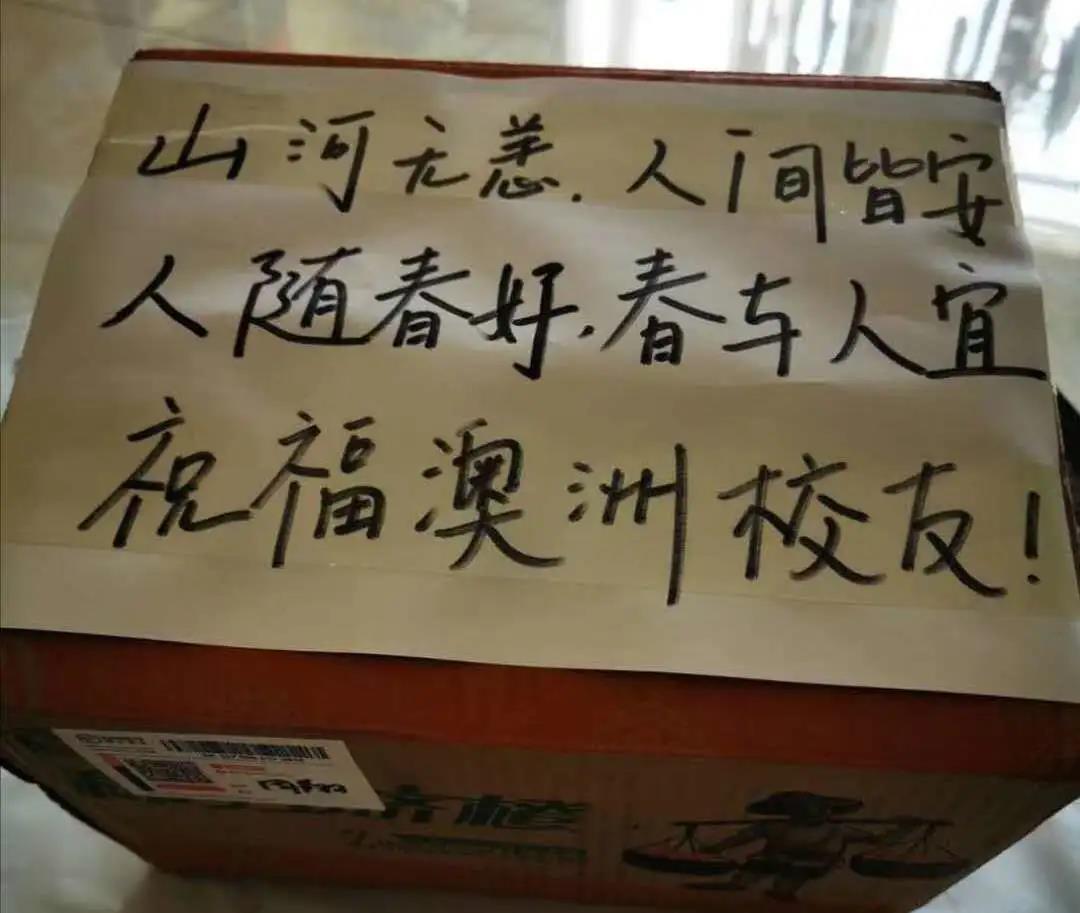 山河无恙.人间皆安
人随春好.春车人宜
祝福澳洲校友!